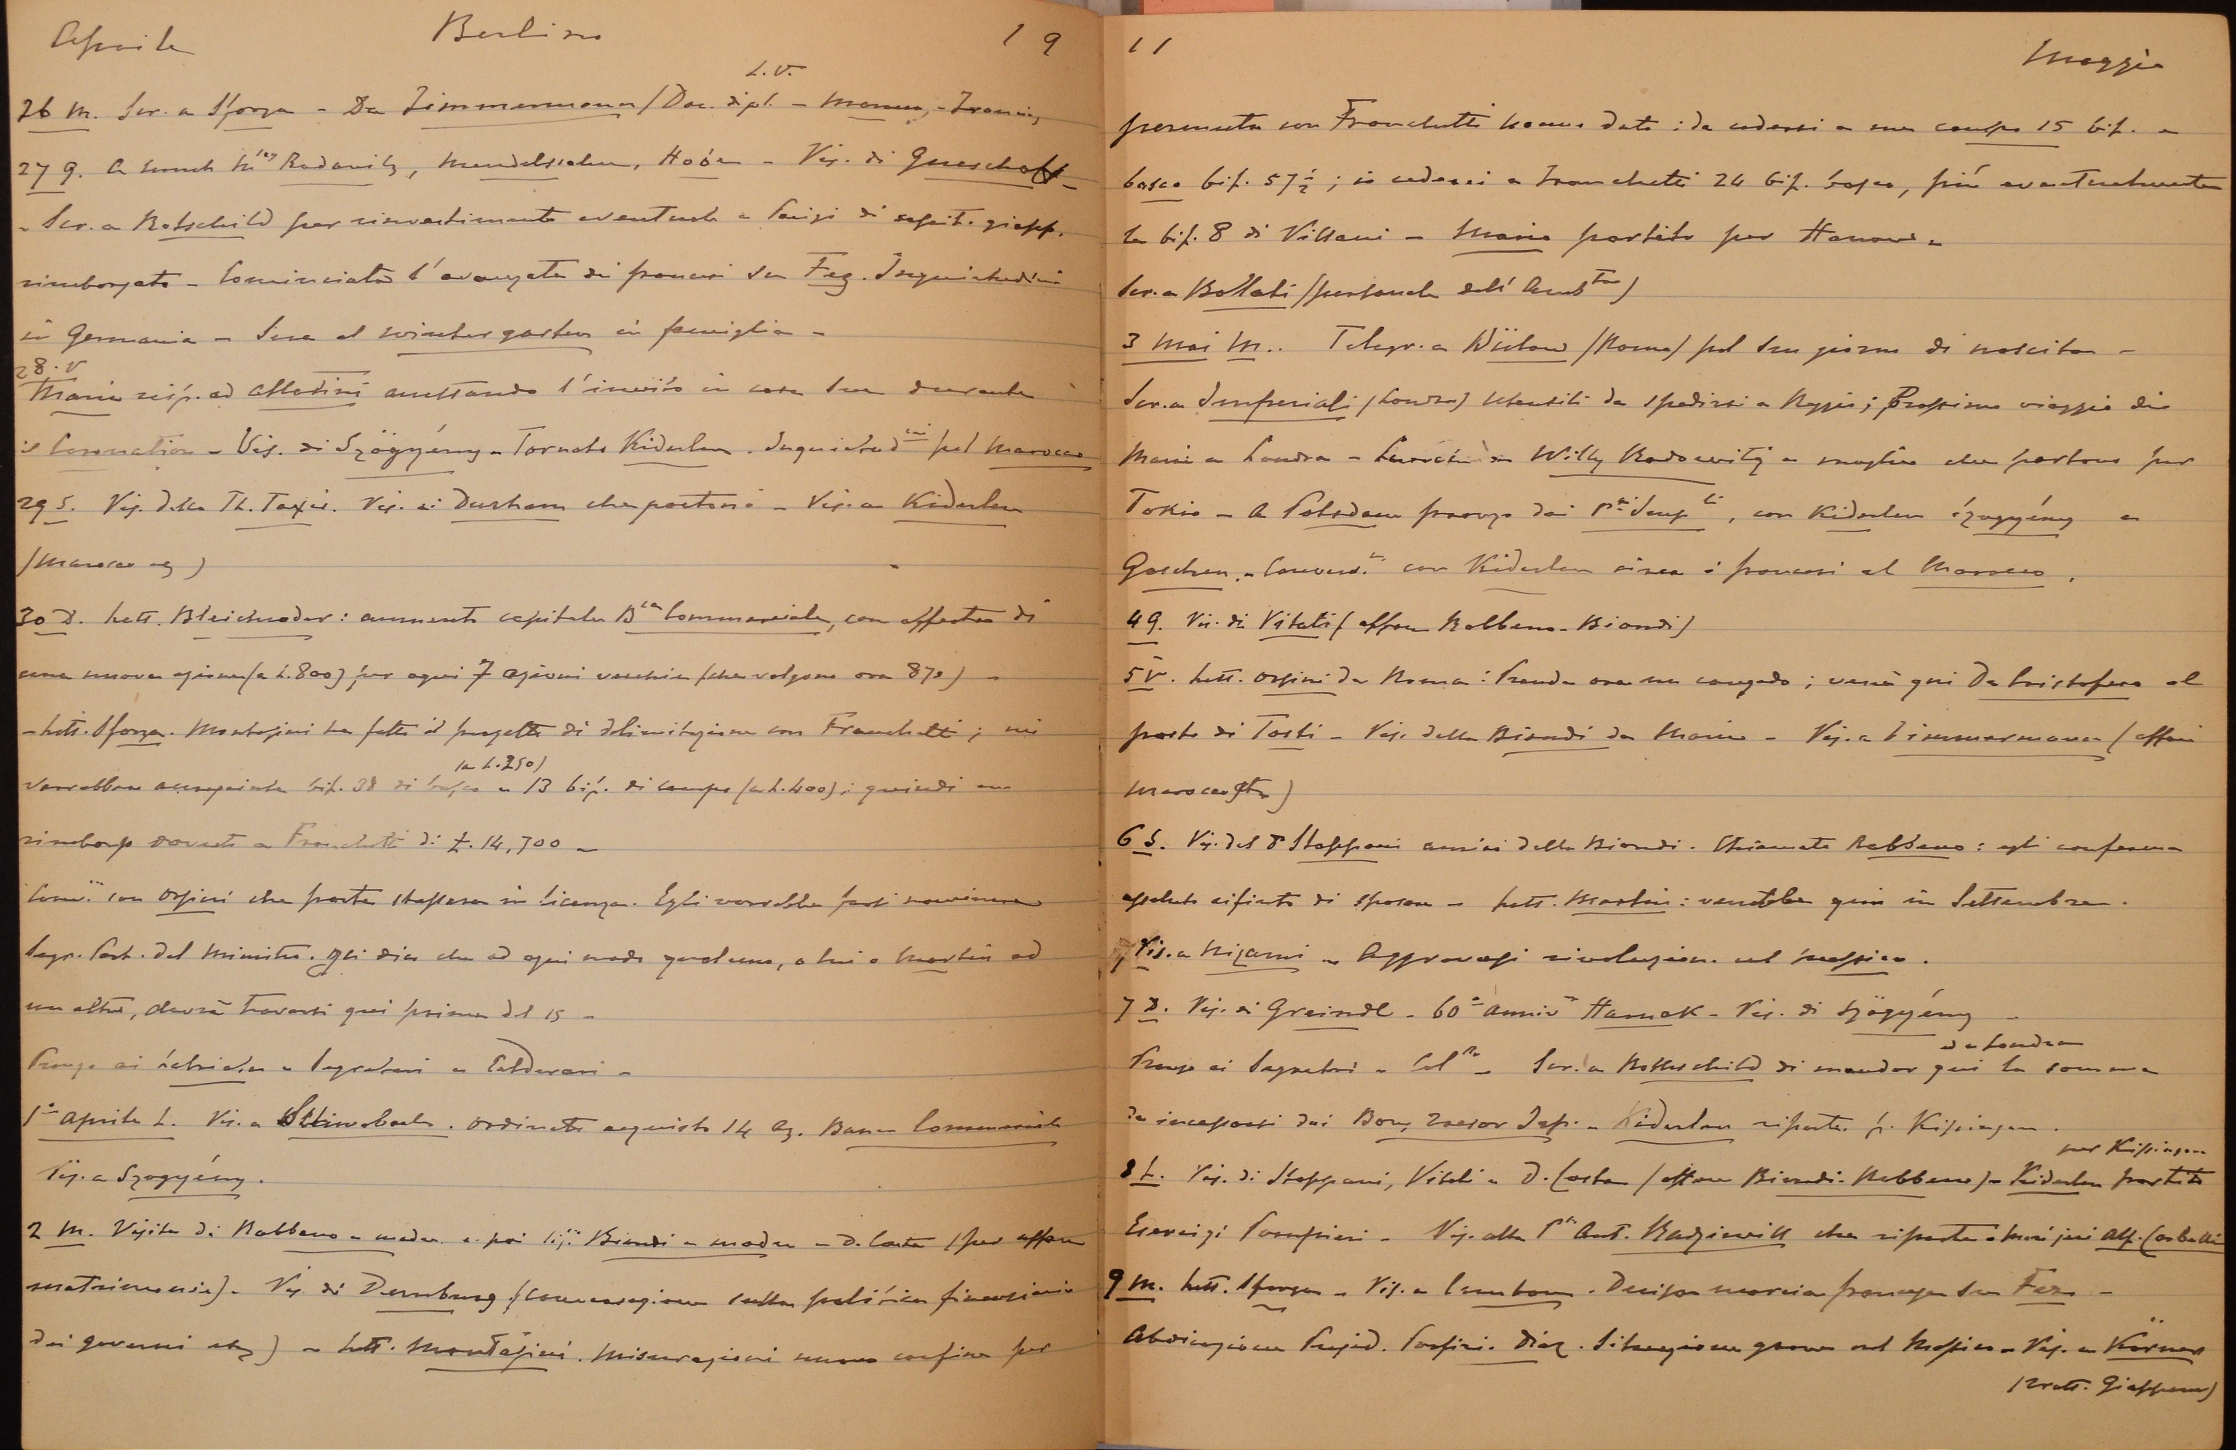 Aprile Berlino 19
L.V.
26 M. Scr. a Sforza - Da Zimmermann (Doc. dipl. -
27 G. A lunch Radowitz, Mendelssohn, - Vis. di Gueschoff -
- Scr. a Rotschild per rinvestimento eventuale a Parigi di capit. giapp.
rimborsato - Cominciata l'avanzata dei francesi su Fez. Inquietudini
in Germania - Sera al wintergarten in famiglia -
28. V
Maria risp. ad accettando l'invito in casa sua durante
la Coronation - Vis. di Szögyény - Tornato Kiderlen. Inquietud.ini pel Marocco
29 S. Vis. della Th. Taxis. Vis. di Durham che partono - Vis. a Kiderlen
(Marocco )
30 D. Lett. Bleichroder: aumento capitale B.ca Commerciale, con offerta di
una nuova azione (a L. 800) per ogni 7 azioni vecchie (che valgono ora 870) -
- Lett. Sforza. Montasini ha fatto il progetto di delimitazione con Franchetti; mi
(a L. 250)
verrebbero assegnate bif. 38 di bosco e 13 bif. di campo (a L. 400); quindi un
rimborso dovuto a Franchetti di £. 14,700 -
Conv. con Orsini che parte stassera in licenza. Egli vorrebbe farsi nominare
Segr. Part. del Ministro. Gli dico che ad ogni modo qualcuno, o lui o Martin od
un altro, dovrà trovarsi qui prima del 15 -
Pranzo ai Segretari e Calderari -
1° Aprile L. Vis. a . Ordinato acquisto 14 Az. Banca Commerciale
Vis. a Szogyény.
2 M. Visita di Rabbeno e madre e poi Sig. Biondi e madre - D. Costa (per affare
matrimonio) - Vis. di Dernburg (conversazione sulla politica finanziaria
dei governi ) - Lett. Montasini. Misurazioni nuovo confine per
11 Maggio
permuta con Franchetti hanno dato: da cedersi a me campo 15 bif. e
bosco bif. 57½; io cederei a Franchetti 24 bif. bosco, più eventualmente
la bif. 8 di Villani - Mario partito per
Scr. a Bollati (personale dell'Amb.ta)
3 Mai M. Telegr. a Bülow (Roma) pel suo giorno di nascita -
Scr. a Imperiali (Londra) utensili da spedirsi a Reggio; prossimo viaggio di
Maria a Londra - Willy Radowitz e moglie che partono per
Tokio - A Potsdam pranzo dai P.pi Imp.li, con Kiderlen Szögyény e
Goschen. - Convers. con Kiderlen circa i francesi al Marocco.
4 G. Vis. di Vitali (affare Rabbeno-Biondi)
5 V. Lett. Orsini da Roma: Prende ora un congedo; verrà qui De Cristofero al
posto di Tosti - Vis. della Biondi da Maria - Vis. a Zimmermann (affari
Marocco )
6 S. Vis. del Dr Stoppani amico della Biondi. Chiamato Rabbeno: egli conferma
assoluto rifiuto di sposare - Lett. Martin: verrebbe qui in Settembre.
Vis. a Nizami - Aggravasi rivoluzione nel Messico.
7 D. Vis. di Greindl - 60° Anniv.° Harnak - Vis. di Szögyény -
da Londra
Pranzo ai Segretari - Col.ne - Scr. a Rothschild di mandar qui la somma
da incassarsi dai Bons Trésor Jap. - Kiderlen riparte p. Kissingen.
per Kissingen
8 L. Vis. di Stoppani, Vitali e D. Costa (affare Biondi-Rabbeno) - Kiderlen partito
Esercizi Pompieri - Vis. alla P.ssa Ant. Radziwill che riparte. Morì jeri Alf.
9 M. Lett. Sforza - Vis. a Cambon. Decisa marcia francese su Fez -
Abdicazione Presid. Porfirio Diaz. Situazione grave nel Messico - Vis. a Körner
(tratt. Giappone)